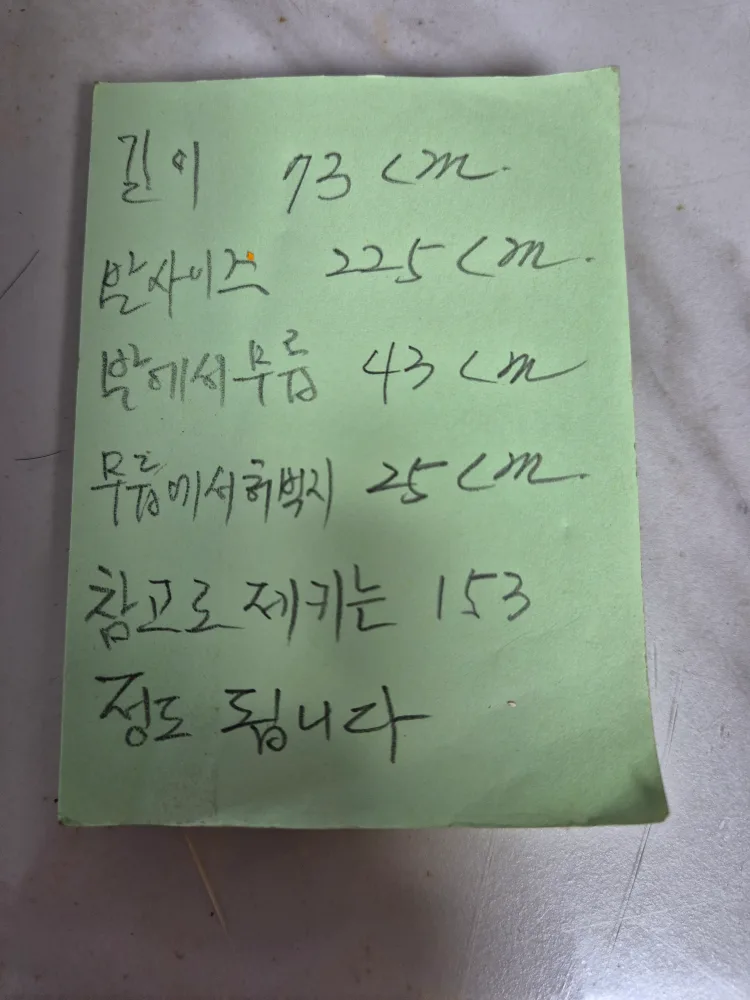 길이 73 cm.
발사이즈 225 cm.
발에서무릎 43 cm
무릎에서허벅지 25 cm.
참고로 제키는 153
정도 됩니다